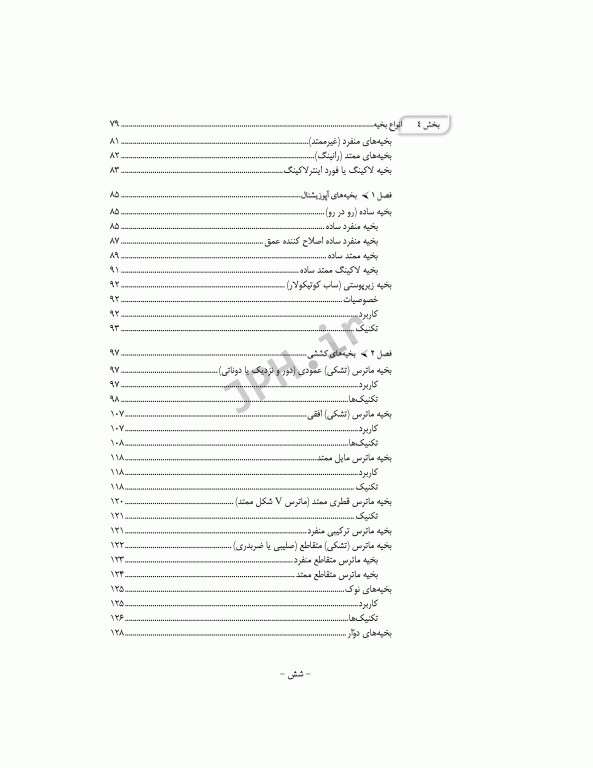 بخش ۴ انواع بخیه ۷۹
بخیه‌های منفرد (غیرممتد) ۸۱
بخیه‌های ممتد (رانینگ) ۸۲
بخیه لاکینگ یا فورد اینترلاکینگ ۸۳
فصل ۱ بخیه‌های آپوزیشنال ۸۵
بخیه ساده (رو در رو) ۸۵
بخیه منفرد ساده ۸۵
بخیه منفرد ساده اصلاح کننده عمق ۸۷
بخیه ممتد ساده ۸۹
بخیه لاکینگ ممتد ساده ۹۱
بخیه زیرپوستی (ساب کوتیکولار) ۹۲
خصوصیات ۹۲
کاربرد ۹۲
تکنیک ۹۳
فصل ۲ بخیه‌های کششی ۹۷
بخیه ماترس (تشکی) عمودی (دور و نزدیک یا دوناتی) ۹۷
کاربرد ۹۷
تکنیک‌ها ۹۸
بخیه ماترس (تشکی) افقی ۱۰۷
کاربرد ۱۰۷
تکنیک‌ها ۱۰۸
بخیه ماترس مایل ممتد ۱۱۸
کاربرد ۱۱۸
تکنیک ۱۱۸
بخیه ماترس قطری ممتد (ماترس V شکل ممتد) ۱۲۰
تکنیک ۱۲۱
بخیه ماترس ترکیبی منفرد ۱۲۱
بخیه ماترس (تشکی) متقاطع (صلیبی یا ضربدری) ۱۲۲
بخیه ماترس متقاطع منفرد ۱۲۳
بخیه ماترس متقاطع ممتد ۱۲۴
بخیه‌های نوک ۱۲۵
کاربرد ۱۲۵
تکنیک‌ها ۱۲۶
بخیه‌های دوّار ۱۲۸
- شش -
JPH.ir